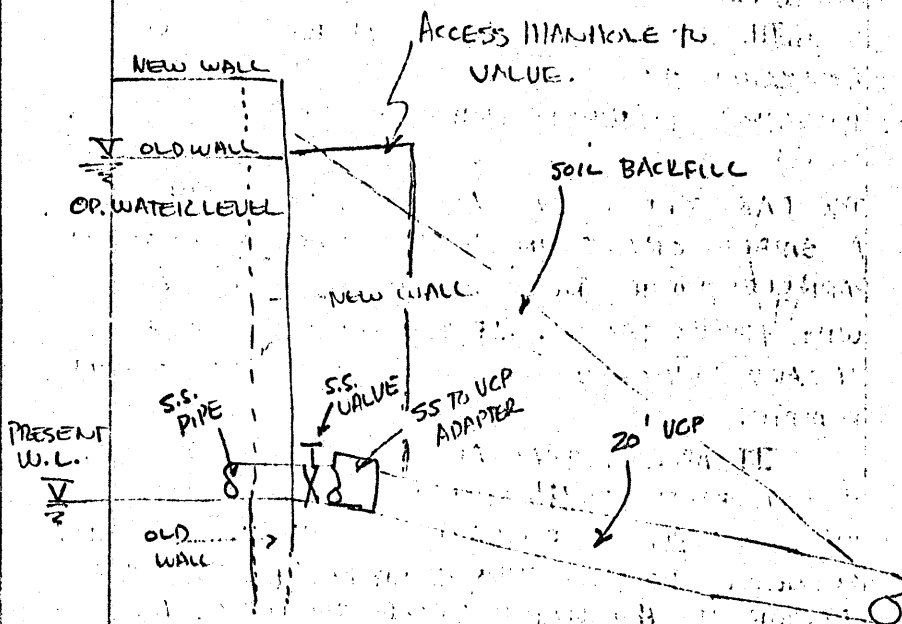 ACCESS MANHOLE TO
VALVE.
NEW WALL
OLD WALL
SOIL BACKFILL
OP. WATER LEVEL
NEW WALL
S.S.
PIPE
S.S.
VALVE
SS TO VCP
ADAPTER
20' VCP
PRESENT
W.L.
OLD
WALL